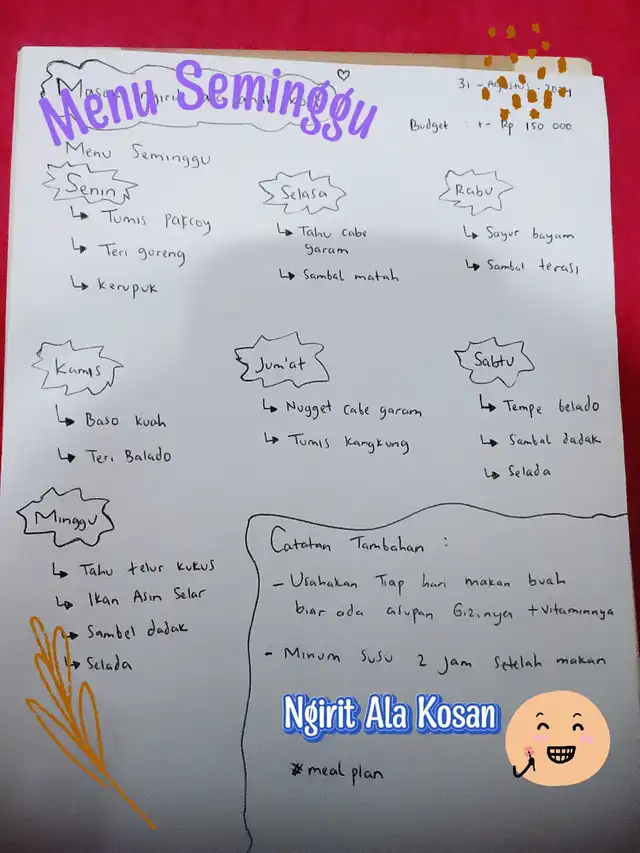 Menu Seminggu
31 - Agustus -
Budget : +- Rp 150 000
Menu Seminggu
Senin
↳ Tumis pakcoy
↳ Teri goreng
↳ Kerupuk
Selasa
↳ Tahu cabe
garam
↳ Sambal matah
Rabu
↳ Sayur bayam
↳ Sambal terasi
Kamis
↳ Baso kuah
↳ Teri Balado
Jum'at
↳ Nugget cabe garam
↳ Tumis kangkung
Sabtu
↳ Tempe belado
↳ Sambal dadak
↳ Selada
Minggu
↳ Tahu telur kukus
↳ Ikan Asin Selar
↳ Sambel dadak
↳ Selada
Catatan Tambahan :
- Usahakan Tiap hari makan buah
biar ada asupan Gizinya + Vitaminnya
- Minum susu 2 jam setelah makan
Ngirit Ala Kosan
* meal plan